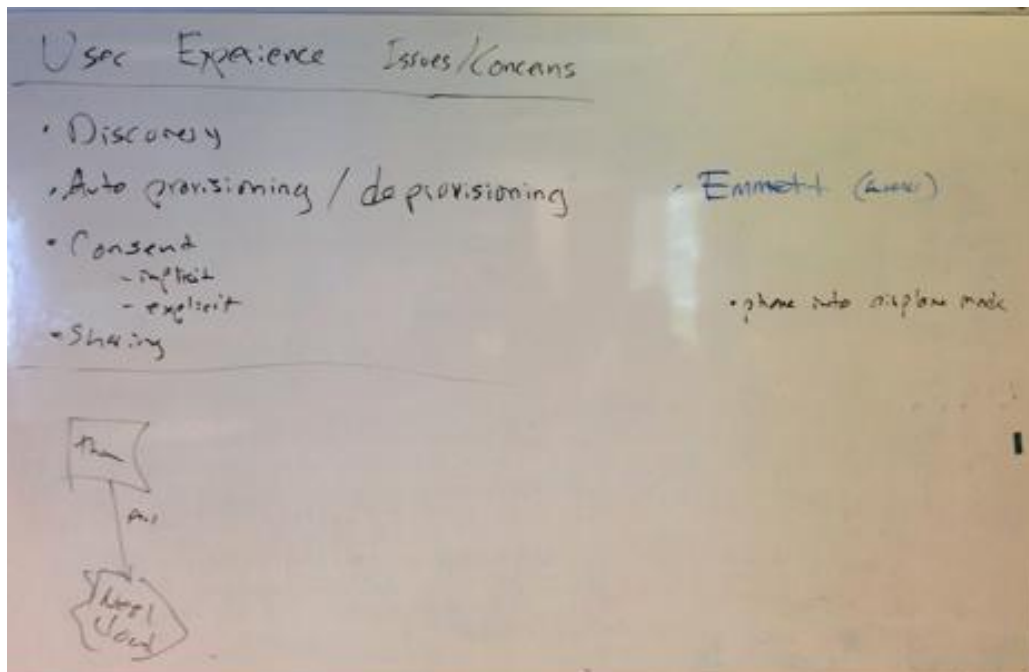 User Experience Issues/Concerns
• Discovery
• Auto provisioning / deprovisioning
• Consent
- implicit
- explicit
• Sharing
• Emmett
• phone into airplane mode
Cloud